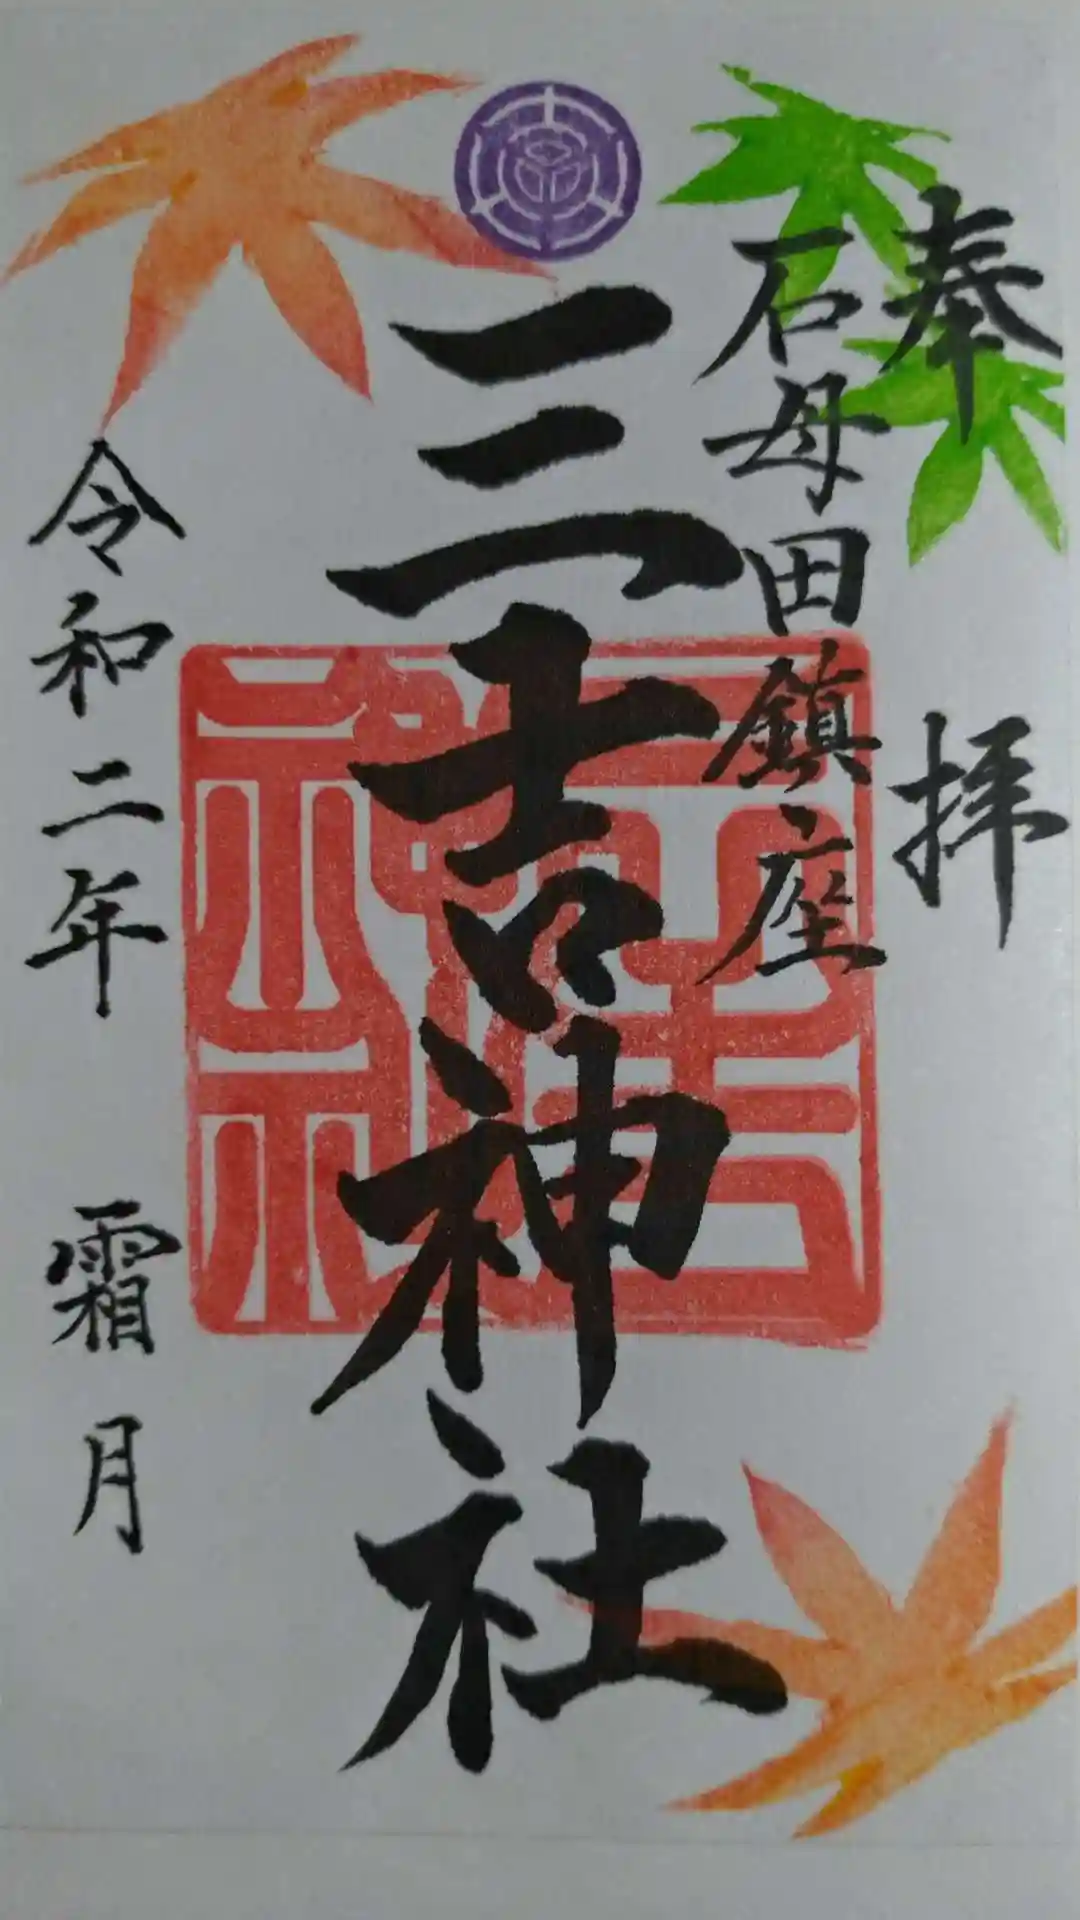 奉拝
石母田鎮座
三吉神社
令和二年 霜月